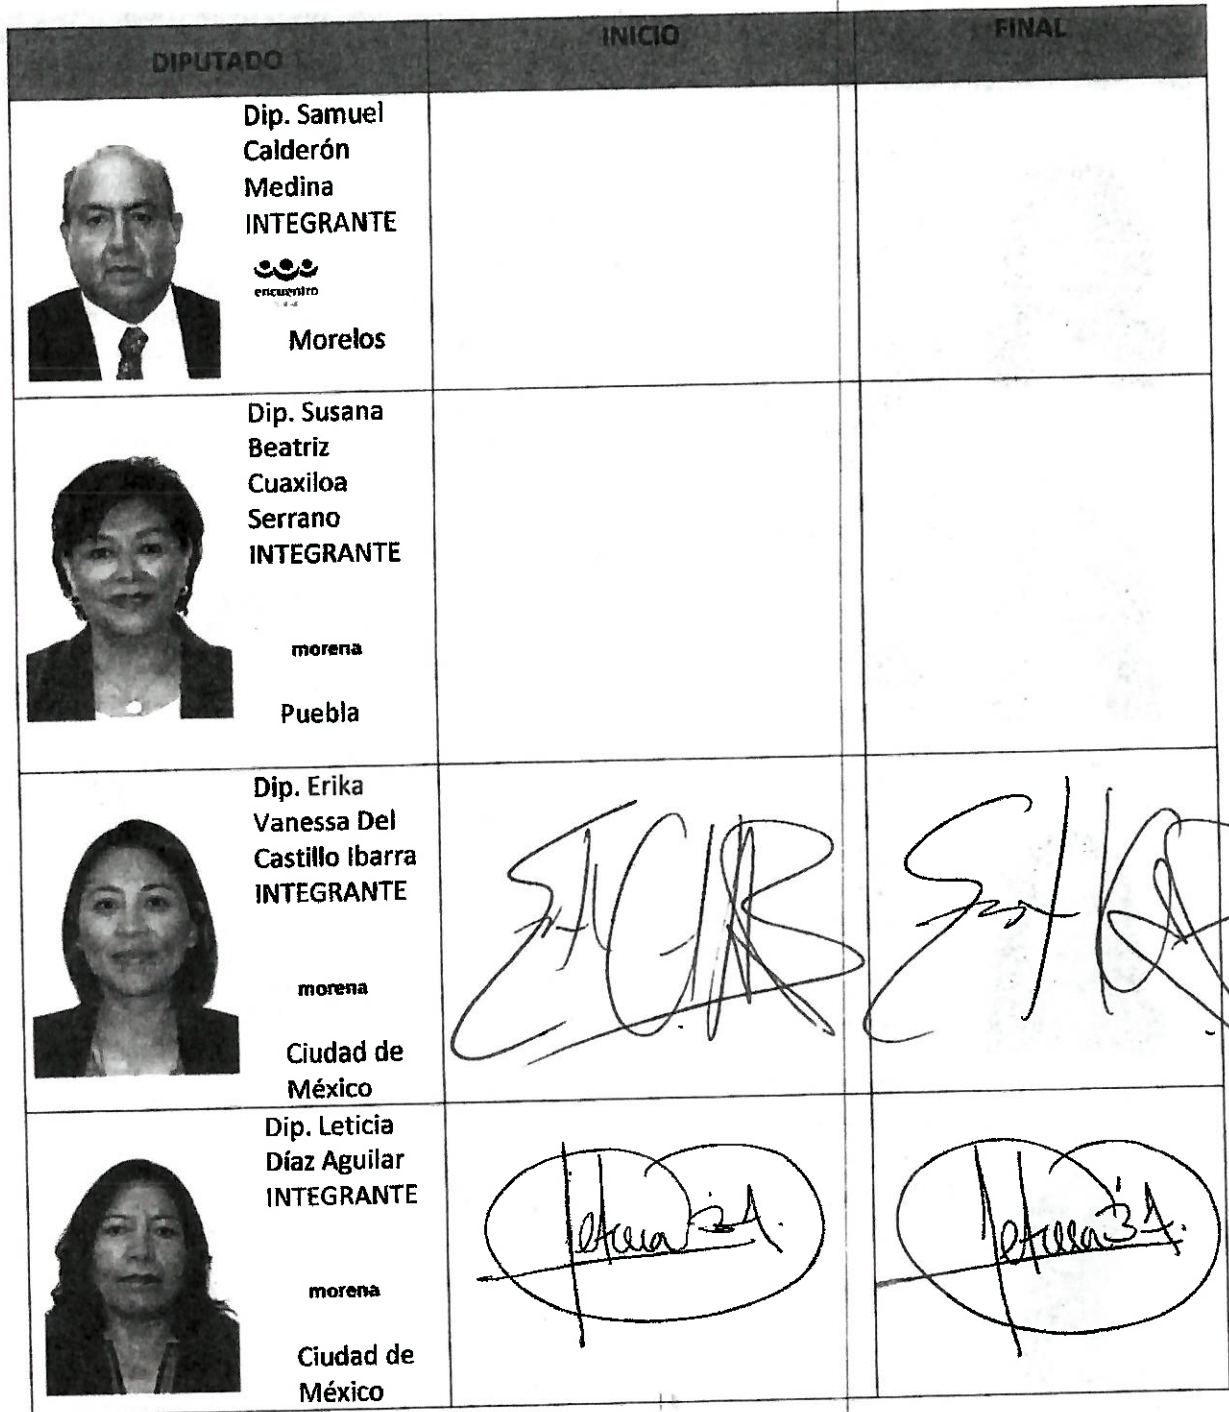 DIPUTADO
INICIO
FINAL
Dip. Samuel
Calderón
Medina
INTEGRANTE
encuentro
Morelos
Dip. Susana
Beatriz
Cuaxiloa
Serrano
INTEGRANTE
morena
Puebla
Dip. Erika
Vanessa Del
Castillo Ibarra
INTEGRANTE
morena
Ciudad de
México
Dip. Leticia
Díaz Aguilar
INTEGRANTE
morena
Ciudad de
México